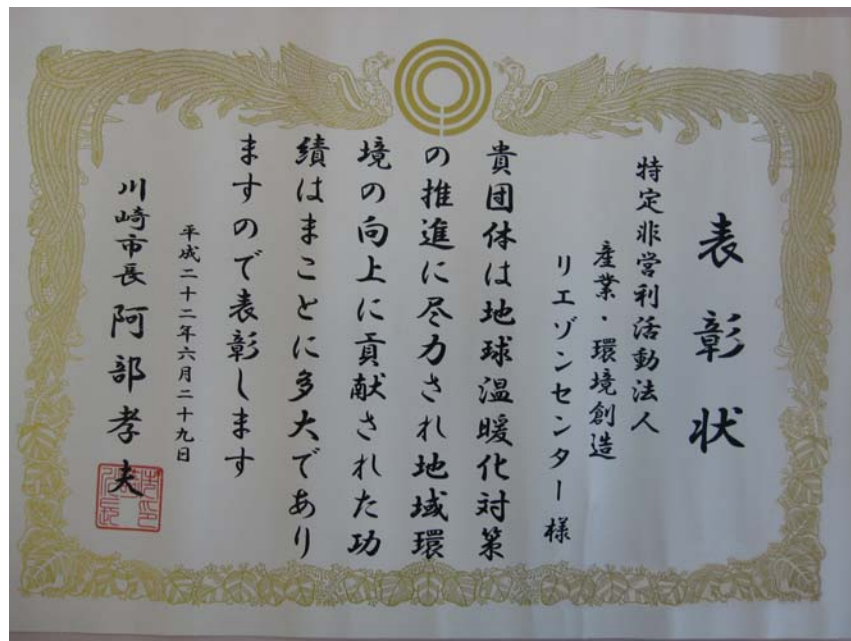 表彰状
特定非営利活動法人
産業・環境創造
リエゾンセンター様
貴団体は地球温暖化対策
の推進に尽力され地域環
境の向上に貢献された功
績はまことに多大であり
ますので表彰します
平成二十二年六月二十九日
川崎市長 阿部孝夫